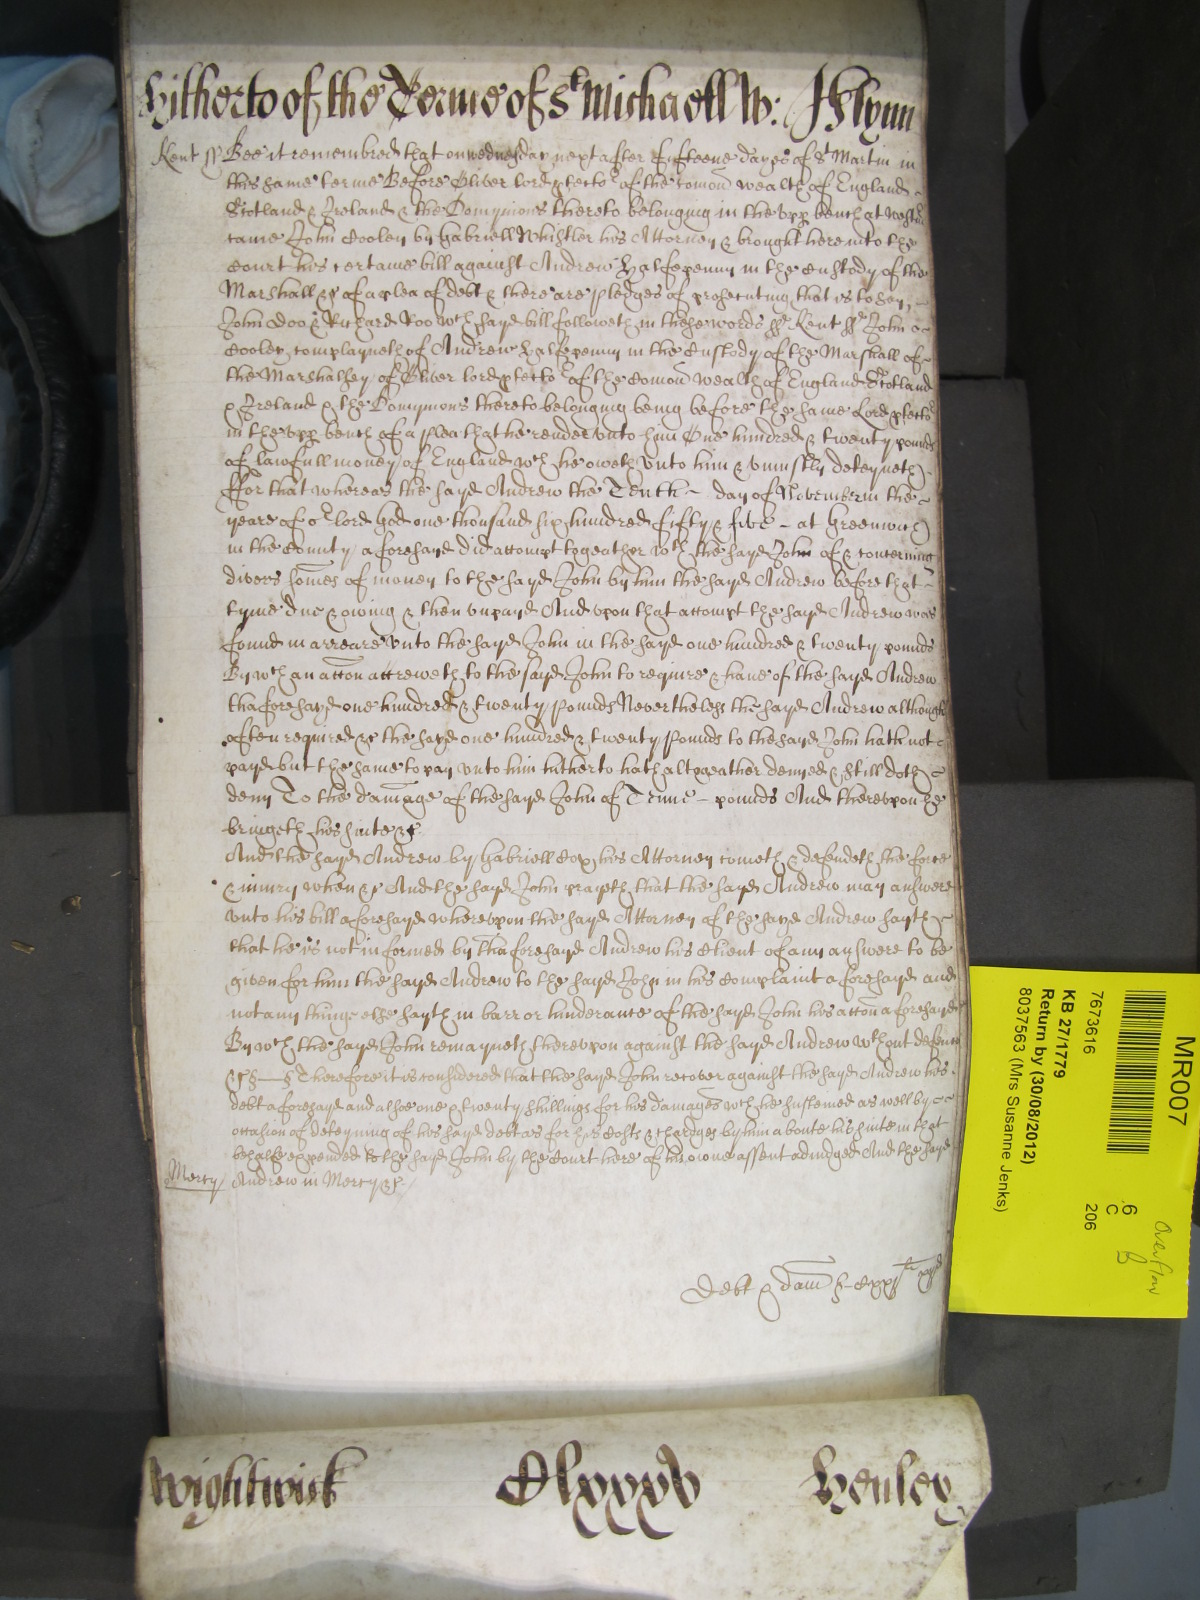 Hitherto of the Terme of St Michaell W: Hlynn
Kent ss Bee it remembred that on wednesday next after fifteene dayes of St Martin in
this same terme Before Oliver lord ptector of the comon wealth of England
Scotland & Ireland & the Dominyons thereto belonging in the upp bench at westm
came John Cooley by Gabriell Whistler his Attorney & brought here into the
Court his certaine bill against Andrew Halfepenny in the Custody of the
Marshall &c of a plea of debt & there are pledges of prosecuting that is to say,
John Doo & Richard Roo wch sayd bill followeth in these words ss Kent ss John
Cooley complayneth of Andrew Halfepenny in the Custody of the Marshall of
the Marshalsey of Oliver lord ptector of the Comon wealth of England Scotland
& Ireland & the Dominyons thereto belonging being before the same Lord ptector
in the upp bench of a plea that he render unto him One hundred & twenty pounds
of lawfull money of England wch he oweth unto him & uniustly deteyneth
ffor that whereas the sayd Andrew the Tenth day of November in the
yeare of or lord God one thousand six hundred fifty & five at Greenwich
in the County aforesayd did accompt togeather wth the sayd John of & concerning
divers somes of money to the sayd John by him the sayd Andrew before that
tyme due & owing & then unpayd And upon that accompt the sayd Andrew was
found in arreare unto the sayd John in the sayd one hundred & twenty pounds
By wch an accon accreweth to the sayd John to require & have of the sayd Andrew
thaforesayd one hundred & twenty pounds Neverthelesse the sayd Andrew although
often required &c the sayd one hundred & twenty pounds to the sayd John hath not
payd but the same to pay unto him hitherto hath altogeather denyed & still doth
deny To the damage of the sayd John of Tenne pounds And thereupon he
bringeth his suite &c
And the sayd Andrew by Gabriell Cox his Attorney cometh & defendeth the force
& iniury when &c And the sayd John prayeth that the sayd Andrew may answere
unto his bill aforesayd whereupon the sayd Attorney of the sayd Andrew sayth
that he is not informed by thaforesayd Andrew his Client of any answere to be
given for him the sayd Andrew to the sayd John in his Complaint aforesayd and
not any thinge else sayth in barr or hinderance of the sayd John his accon aforesayd
By wch the sayd John remayneth thereupon against the sayd Andrew wthout defence
&c Therefore it is considered that the sayd John recover against the sayd Andrew his
debt aforesayd and alsoe one & twenty shillings for his damages wch he susteined as well by
occasion of deteyning of his sayd debt as for his Costs & chardges by him aboute his suite in that
behalfe expended to the sayd John by the Court here of his owne assent adiudged And the sayd
Mercy Andrew in Mercy &c
Debt & dam
Wightwick Clxxxv Henley
MR007
7673616
KB 27/1779
Return by (30/08/2012)
8037563 (Mrs Susanne Jenks)
6
C
206
Overflow